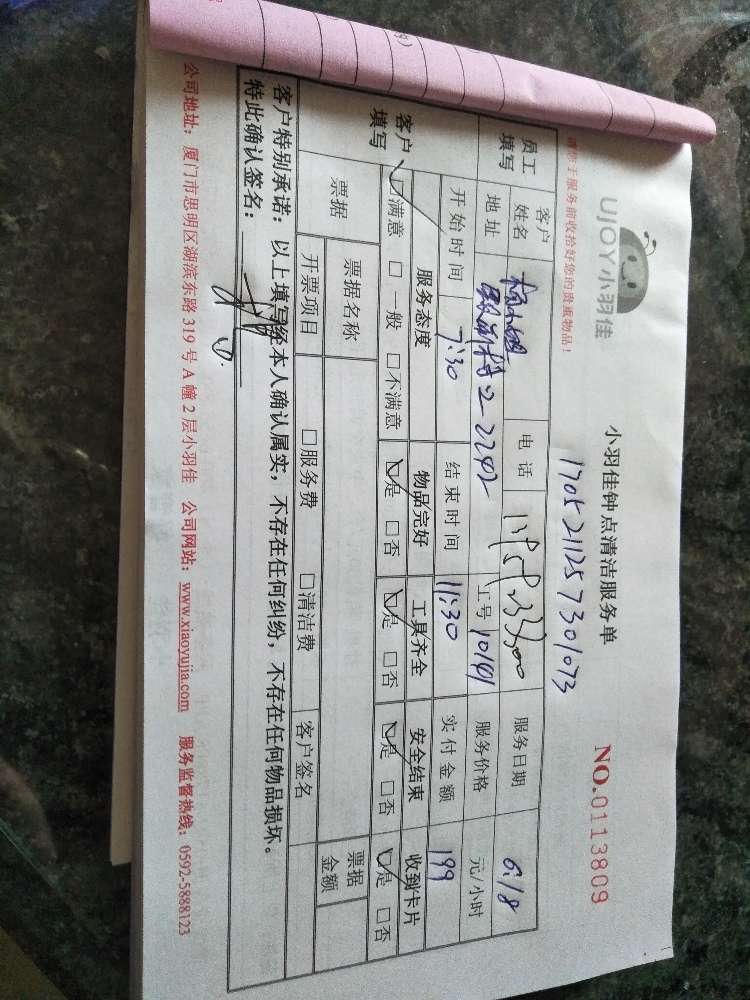 UJOY小羽佳
小羽佳钟点清洁服务单
NO.0113809
1705211257301073
请您于服务前收拾好您的贵重物品！
员工填写
客户姓名
电话
服务日期 6.18
地址 2-2242
工号 10141
服务价格 元/小时
开始时间 7:30
结束时间 11:30
实付金额 199
客户填写
服务态度 物品完好 工具齐全 安全结束 收到卡片
☑满意 □一般 □不满意 ☑是 □否 ☑是 □否 ☑是 □否 ☑是 □否
票据
票据名称
票据金额
开票项目 □服务费 □清洁费 客户签名
客户特别承诺：以上填写经本人确认属实，不存在任何纠纷，不存在任何物品损坏。
特此确认签名：
公司地址：厦门市思明区湖滨东路 319 号 A 幢 2 层小羽佳 公司网站：www.xiaoyujia.com 服务监督热线：0592-5888123